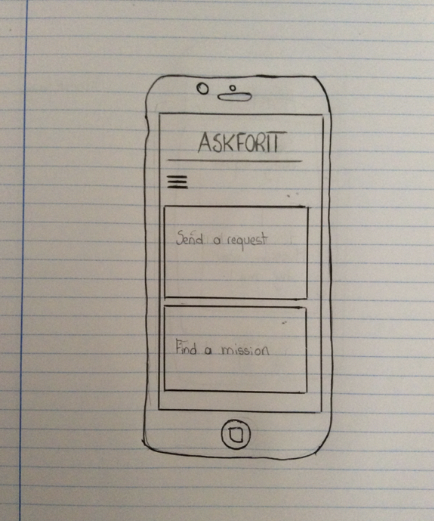 ASKFORIT
Send a request
Find a mission